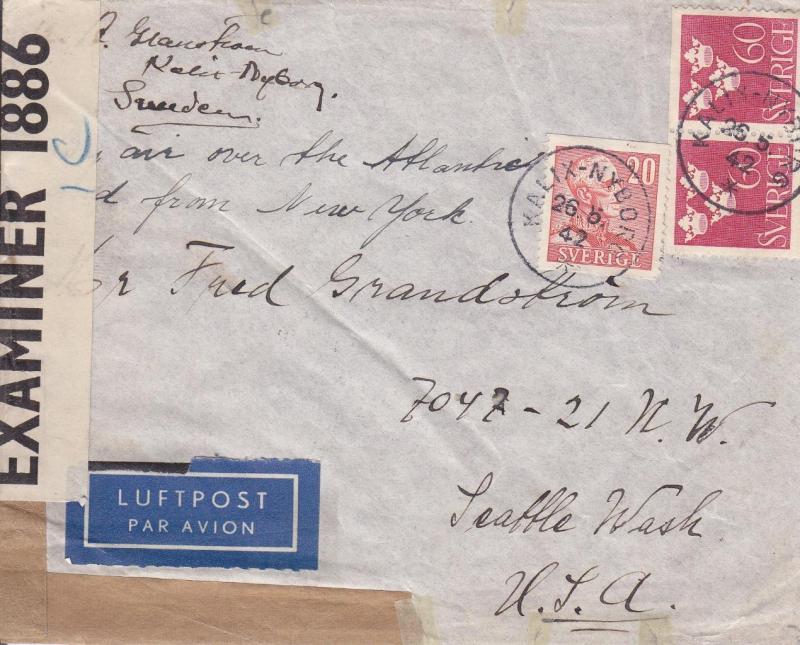 EXAMINER 1886
Kalix-Nyborg.
Sweden.
air over the Atlantic
d from New York.
r Fred Grandström
7042 - 21 N.W.
Seattle Wash
U.S.A.
LUFTPOST
PAR AVION
20
SVERIGE
KALIX-NYBORG
26 5
42
60
SVERIGE
60
SVERIGE
KALIX-NYBORG
26 5
42